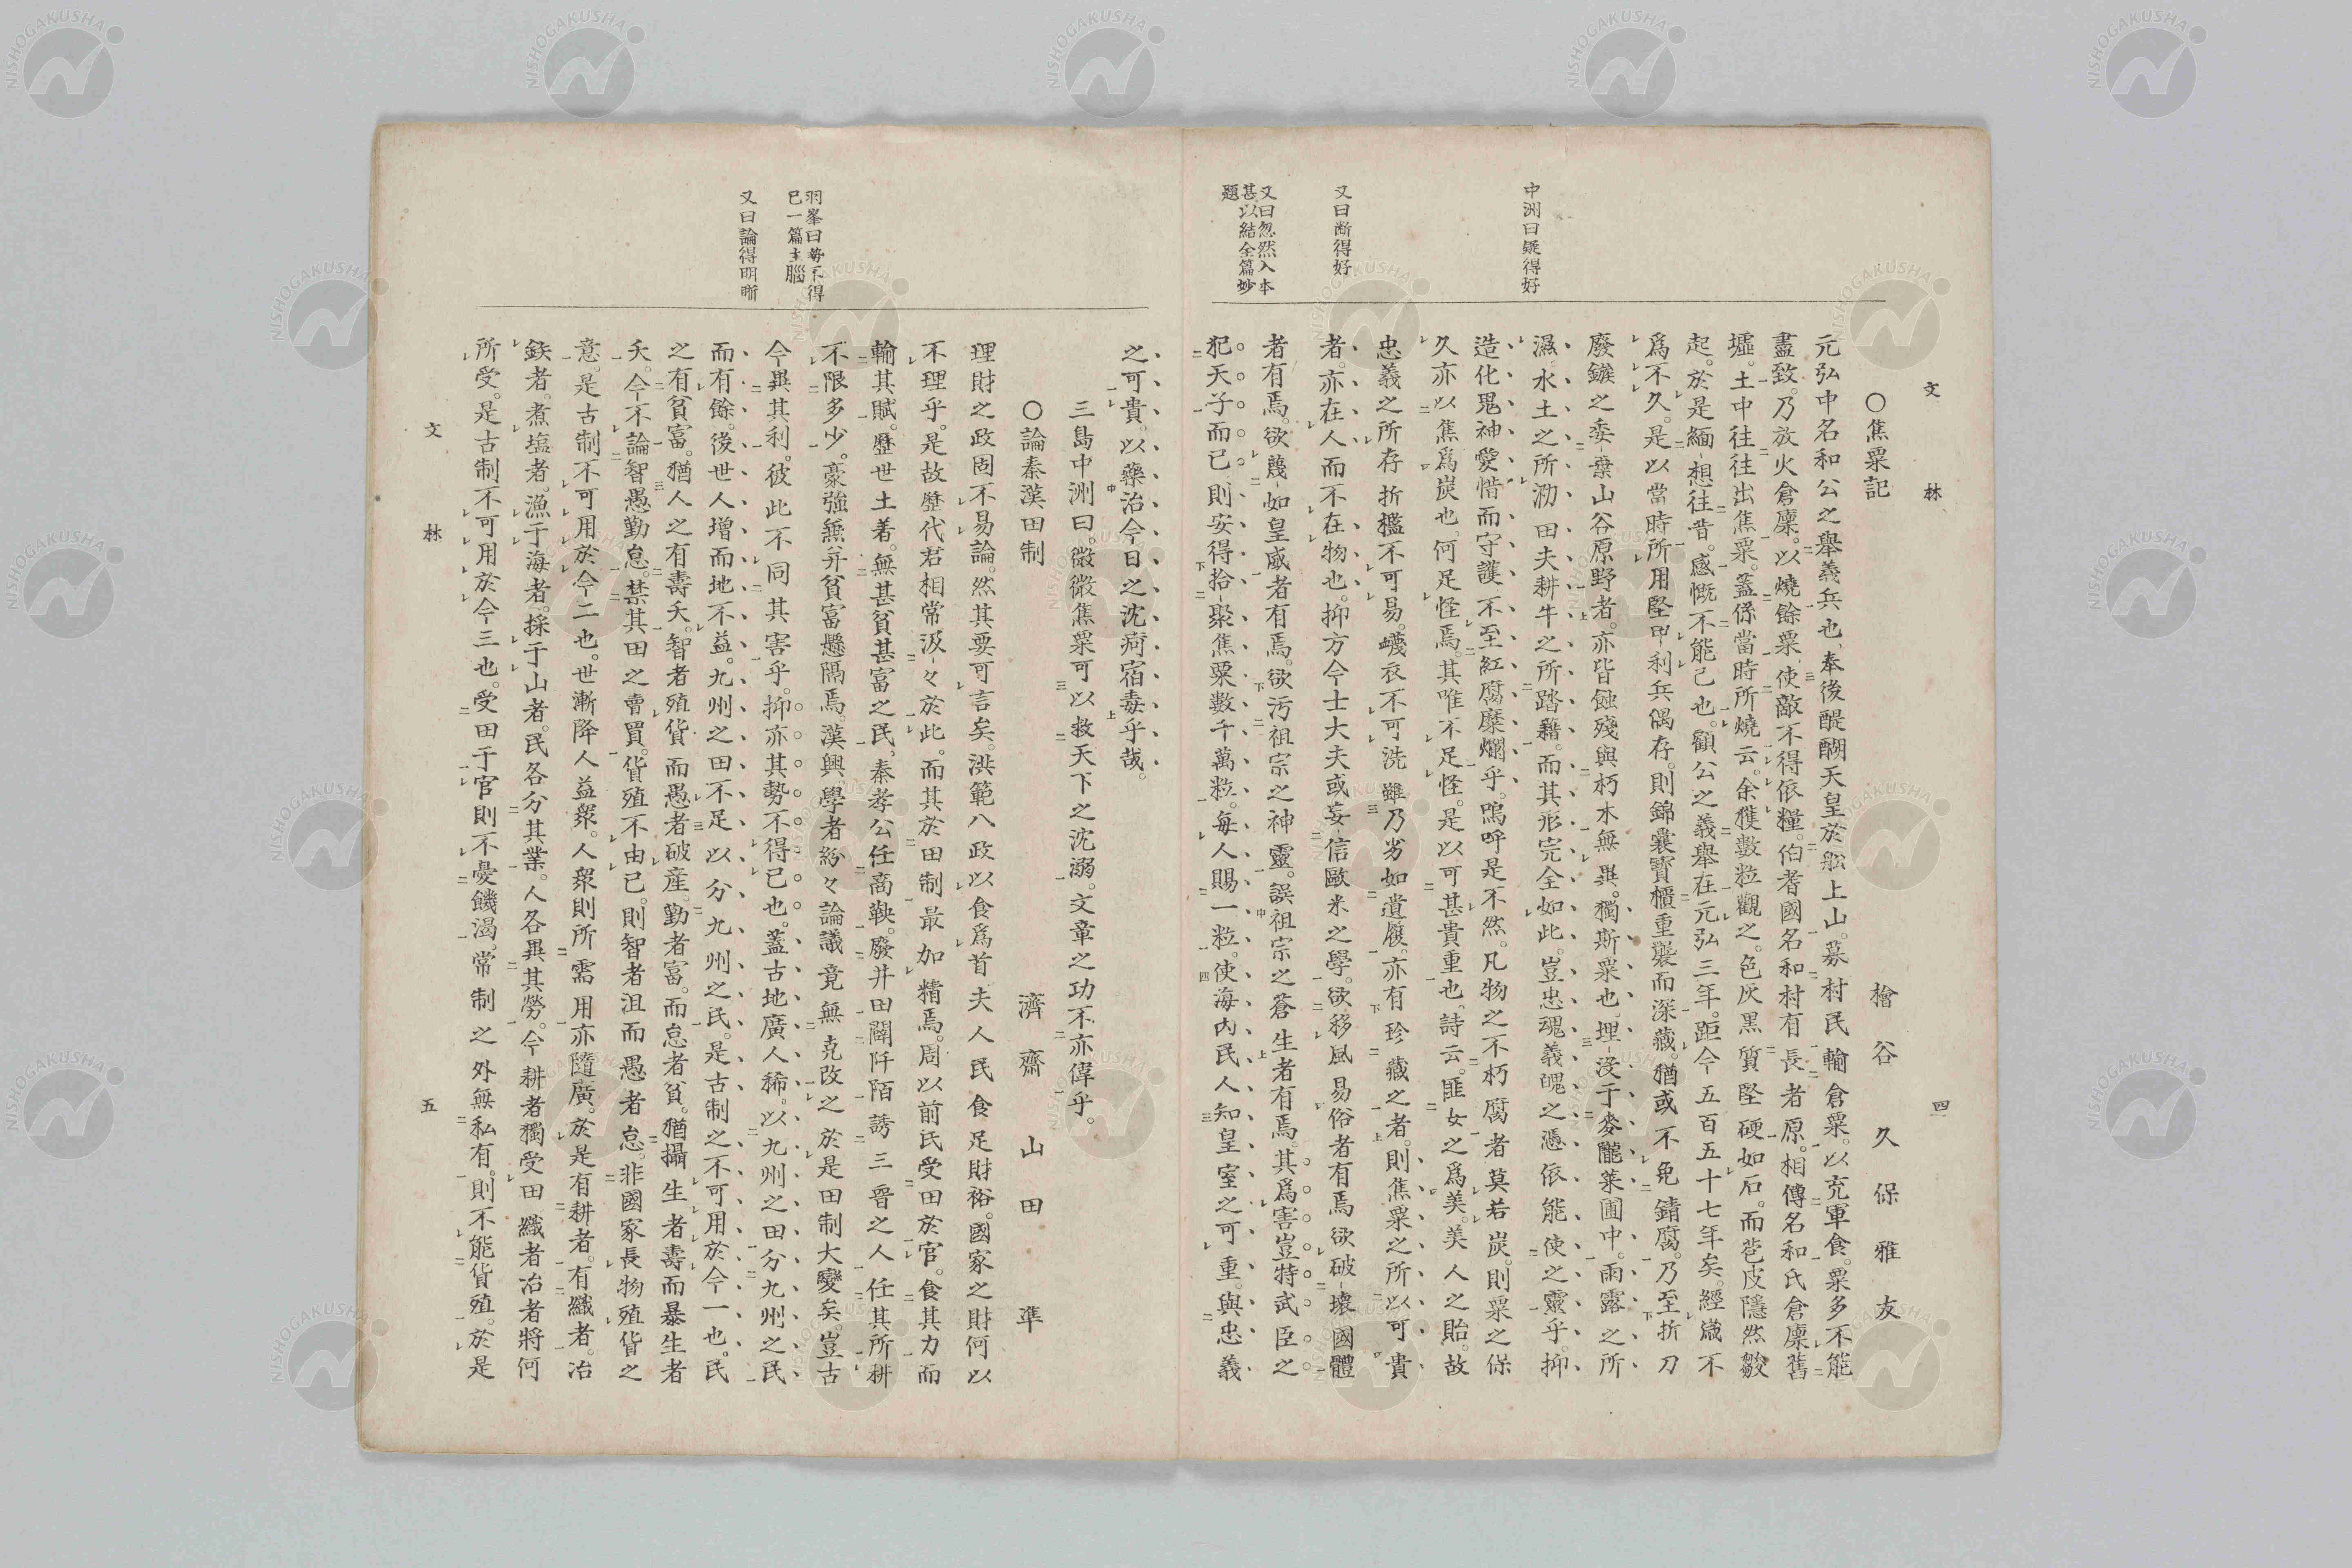 文林 四
中洲曰疑得好
又曰断得好
又曰忽然入本
甚以結全篇妙
題
〇焦粟記 檜谷 久保雅友
元弘中名和公之舉義兵也、奉後醍醐天皇於船上山。募村民輸倉粟。以充軍食。粟多不能
盡致。乃放火倉廩。以燒餘粟、使敵不得依糧。伯耆國名和村有長者原。相傳名和氏倉廩舊
墟。土中往往出焦粟。蓋係當時所燒云。余獲數粒觀之。色灰黒質堅硬如石。而苞皮隱然皺
起。於是緬想往昔。感慨不能已也。顧公之義舉在元弘三年。距今五百五十七年矣。經歳不
爲不久。是以當時所用堅甲利兵偶存。則錦嚢寳櫃重襲而深藏。猶或不免錆腐。乃至折刀
廢鏃之委棄山谷原野者。亦皆蝕殘與朽木無異。獨斯粟也。埋没于麥隴菜圃中。雨露之所
濕、水土之所泐田夫耕牛之所踏藉。而其形完全如此。豈忠魂義魄之憑依能使之靈乎。抑
造化鬼神愛惜而守護不至紅腐糜爛乎。嗚呼是不然。凡物之不朽腐者莫若炭。則粟之保
久亦以焦爲炭也。何足怪焉。其唯不足怪。是以可甚貴重也。詩云。匪女之爲美。美人之貽。故
忠義之所存折檻不可易。衊衣不可洗雖乃劣如遺履。亦有珍藏之者。則焦粟之所以可貴
者。亦在人而不在物也。抑方今士大夫或妄信歐米之學。欲移風易俗者有焉欲破壊國體
者有焉。欲蔑如皇威者有焉。欲汚祖宗之神靈。誤祖宗之蒼生者有焉。其爲害豈特武臣之
犯天子而已。則安得拾聚焦粟數千萬粒。毎人賜一粒。使海内民人知皇室之可重。與忠義
之可貴。以藥治今日之沈痾宿毒乎哉。
三島中洲曰。微微焦粟可以救天下之沈溺。文章之功不亦偉乎。
〇論秦漢田制 濟齋 山田準
理財之政固不易論。然其要可言矣。洪範八政以食爲首夫人民食足財裕。國家之財何以
不理乎。是故歴代君相常汲々於此。而其於田制最加精焉。周以前民受田於官。食其力而
輸其賦。歴世土著。無甚貧甚富之民、秦孝公任商鞅。廢井田開阡陌誘三晉之人任其所耕
不限多少。豪強無并貧富懸隔焉。漢興學者紛々論議竟無克改之於是田制大變矣。豈古
今異其利。彼此不同其害乎。抑亦其勢不得已也。蓋古地廣人稀。以九州之田分九州之民
而有餘。後世人増而地不益。九州之田不足以分九州之民。是古制之不可用於今一也。民
之有貧富。猶人之有壽夭。智者殖貨而愚者破産。勤者富。而怠者貧。猶攝生者壽而暴生者
夭。今不論智愚勤怠。禁其田之賣買。貨殖不由己。則智者沮而愚者怠。非國家長物殖貨之
意。是古制不可用於今二也。世漸降人益衆。人衆則所需用亦隨廣。於是有耕者。有織者。冶
鉄者。煮塩者。漁于海者。採于山者。民各分其業。人各異其勞。今耕者獨受田織者冶者將何
所受。是古制不可用於今三也。受田于官則不憂饑渇。常制之外無私有。則不能貨殖。於是
羽峯曰勢不得
已一篇主腦
又曰論得明晰
文林 五